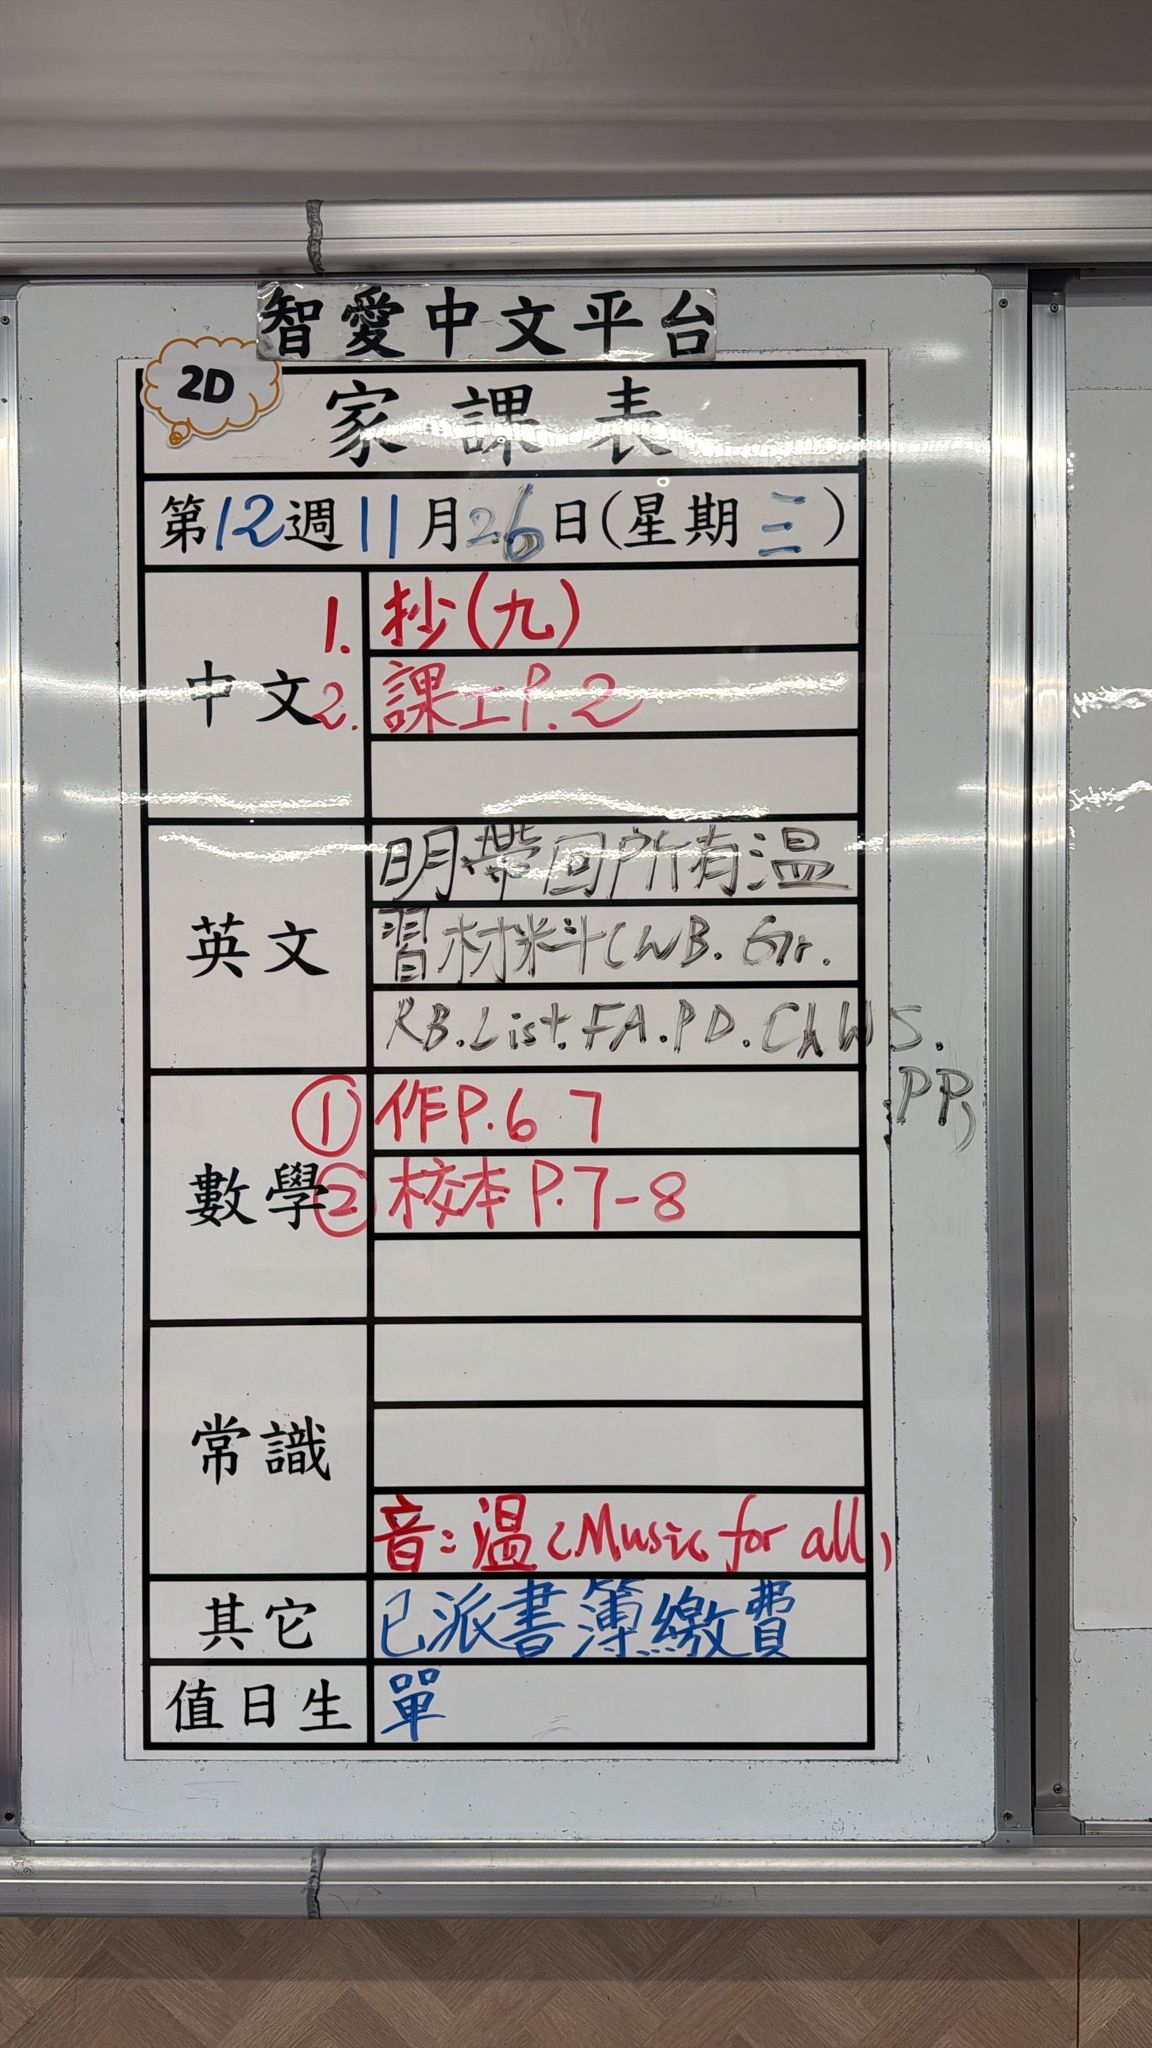 智愛中文平台
2D
家課表
第12週11月26日(星期三)
中文
1. 抄(九)
2. 課工P.2
英文
明帶回所有溫
習材料(WB. Gr.
RB. List. FA. PD. CAWS.
PP)
數學
① 作P.6 7
② 校本P.7-8
常識
音:溫(Music for all)
其它
已派書簿繳費
值日生
單